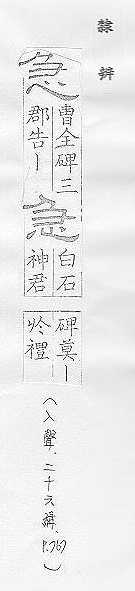 隸辨
急
曹全碑三
郡告丨
急
白石
神君
碑莫丨
於禮
(入聲、二十六緝、P.767)